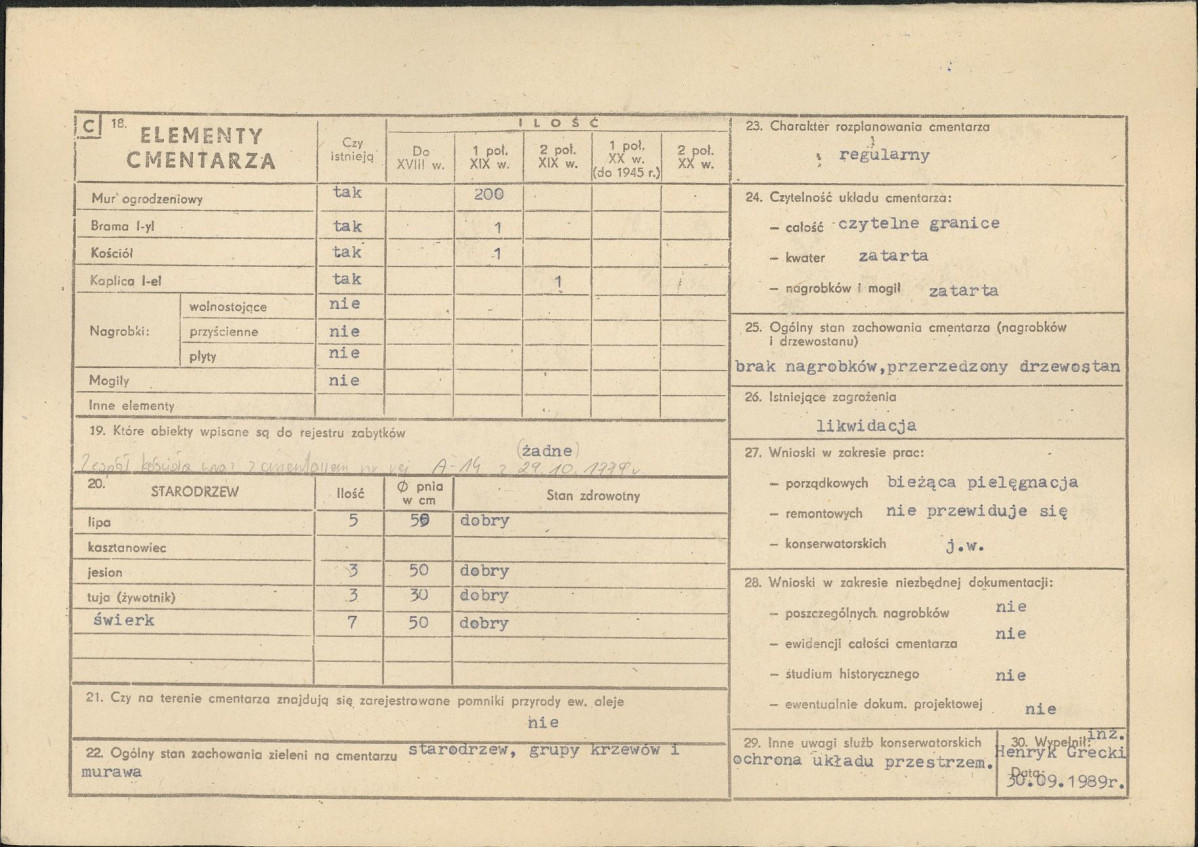 C 18. ELEMENTY CMENTARZA
Czy istnieją
ILOŚĆ
Do XVIII w.
1 poł. XIX w.
2 poł. XIX w.
1 poł. XX w. (do 1945 r.)
2 poł. XX w.
Mur ogrodzeniowy tak 200
Brama I-yI tak 1
Kościół tak 1
Kaplica I-eI tak 1
Nagrobki:
wolnostojące nie
przyścienne nie
płyty nie
Mogiły nie
Inne elementy
19. Które obiekty wpisane są do rejestru zabytków
(żadne)
Zespół kościoła wraz z cmentarzem nr rej A-14 z 29.10.
20. STARODRZEW Ilość Ø pnia w cm Stan zdrowotny
lipa 5 50 dobry
kasztanowiec
jesion 3 50 dobry
tuja (żywotnik) 3 30 dobry
świerk 7 50 dobry
21. Czy na terenie cmentarza znajdują się zarejestrowane pomniki przyrody ew. aleje
nie
22. Ogólny stan zachowania zieleni na cmentarzu starodrzew, grupy krzewów i
murawa
23. Charakter rozplanowania cmentarza
regularny
24. Czytelność układu cmentarza:
– całość czytelne granice
– kwater zatarta
– nagrobków i mogił zatarta
25. Ogólny stan zachowania cmentarza (nagrobków
i drzewostanu)
brak nagrobków,przerzedzony drzewostan
26. Istniejące zagrożenia
likwidacja
27. Wnioski w zakresie prac:
– porządkowych bieżąca pielęgnacja
– remontowych nie przewiduje się
– konserwatorskich j.w.
28. Wnioski w zakresie niezbędnej dokumentacji:
– poszczególnych nagrobków nie
– ewidencji całości cmentarza nie
– studium historycznego nie
– ewentualnie dokum. projektowej nie
29. Inne uwagi służb konserwatorskich
ochrona układu przestrzem.
30. Wypełnił: inż.
Henryk Grecki
Data:
30.09.1989r.